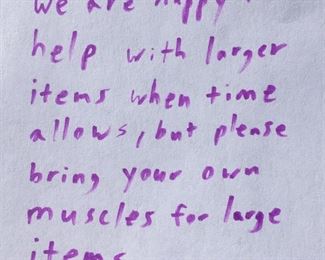 we are happy
help with larger
items when time
allows, but please
bring your own
muscles for large
items